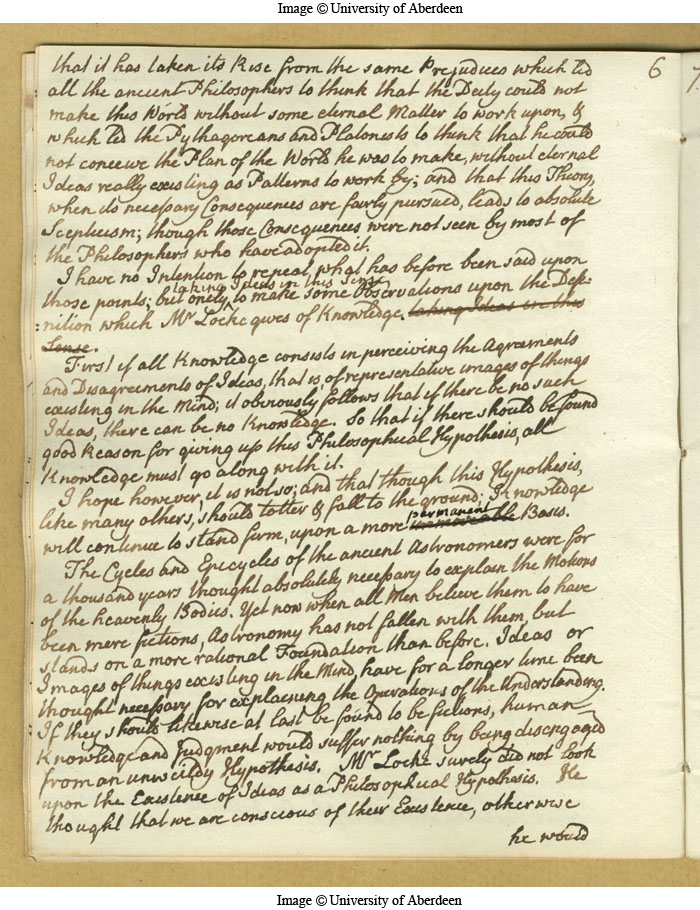 Image © University of Aberdeen
6
7.
that it has taken its Rise from the same Prejudices which led
all the ancient Philosophers to think that the Deity could not
make this World without some eternal Matter to work upon, &
which led the Pythagoreans and Platonists to think that he could
not conceive the Plan of the World he was to make, without eternal
Ideas really existing as Patterns to work by; and that this Theory,
when its necessary Consequences are fairly pursued, leads to absolute
Scepticism; though those Consequences were not seen by most of
the Philosophers who have adopted it.
I have no Intention to repeat, what has before been said upon
taking Ideas in this Sense
those points; but onely, to make some Observations upon the Defi-
nition which Mr Locke gives of Knowledge. taking Ideas in this
Sense.
First if all Knowledge consists in perceiving the Agreements
and Disagreements of Ideas, that is of representative images of things
existing in the Mind; it obviously follows that if there be no such
Ideas, there can be no Knowledge. So that if there should be found
good Reason for giving up this Philosophical Hypothesis, all
Knowledge must go along with it.
I hope however, it is not so; and that though this Hypothesis,
like many others, should totter & fall to the ground; Knowledge
permanent
will continue to stand firm, upon a more immoveable Basis.
The Cycles and Epicycles of the ancient Astronomers were for
a thousand years thought absolutely necessary to explain the Motions
of the heavenly Bodies. Yet now when all Men believe them to have
been mere fictions, Astronomy has not fallen with them, but
stands on a more rational Foundation than before. Ideas or
Images of things existing in the Mind, have for a longer time been
thought necessary for explaining the Operations of the Understanding.
If they should likewise at last be found to be fictions, human
Knowledge and Judgment would suffer nothing by being disengaged
from an unwieldy Hypothesis. Mr Locke surely did not look
upon the Existence of Ideas as a Philosophical Hypothesis. He
thought that we are conscious of their Existence, otherwise
he would
Image © University of Aberdeen